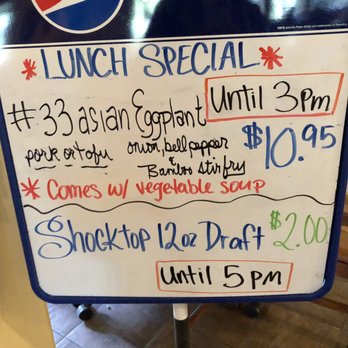 * LUNCH SPECIAL *
#33 asian Eggplant
Until 3pm
pork or tofu
onion, bell pepper
& Bamboo stir fry
$10.95
* Comes w/ vegetable soup
Shocktop 12oz Draft $2.00
Until 5pm